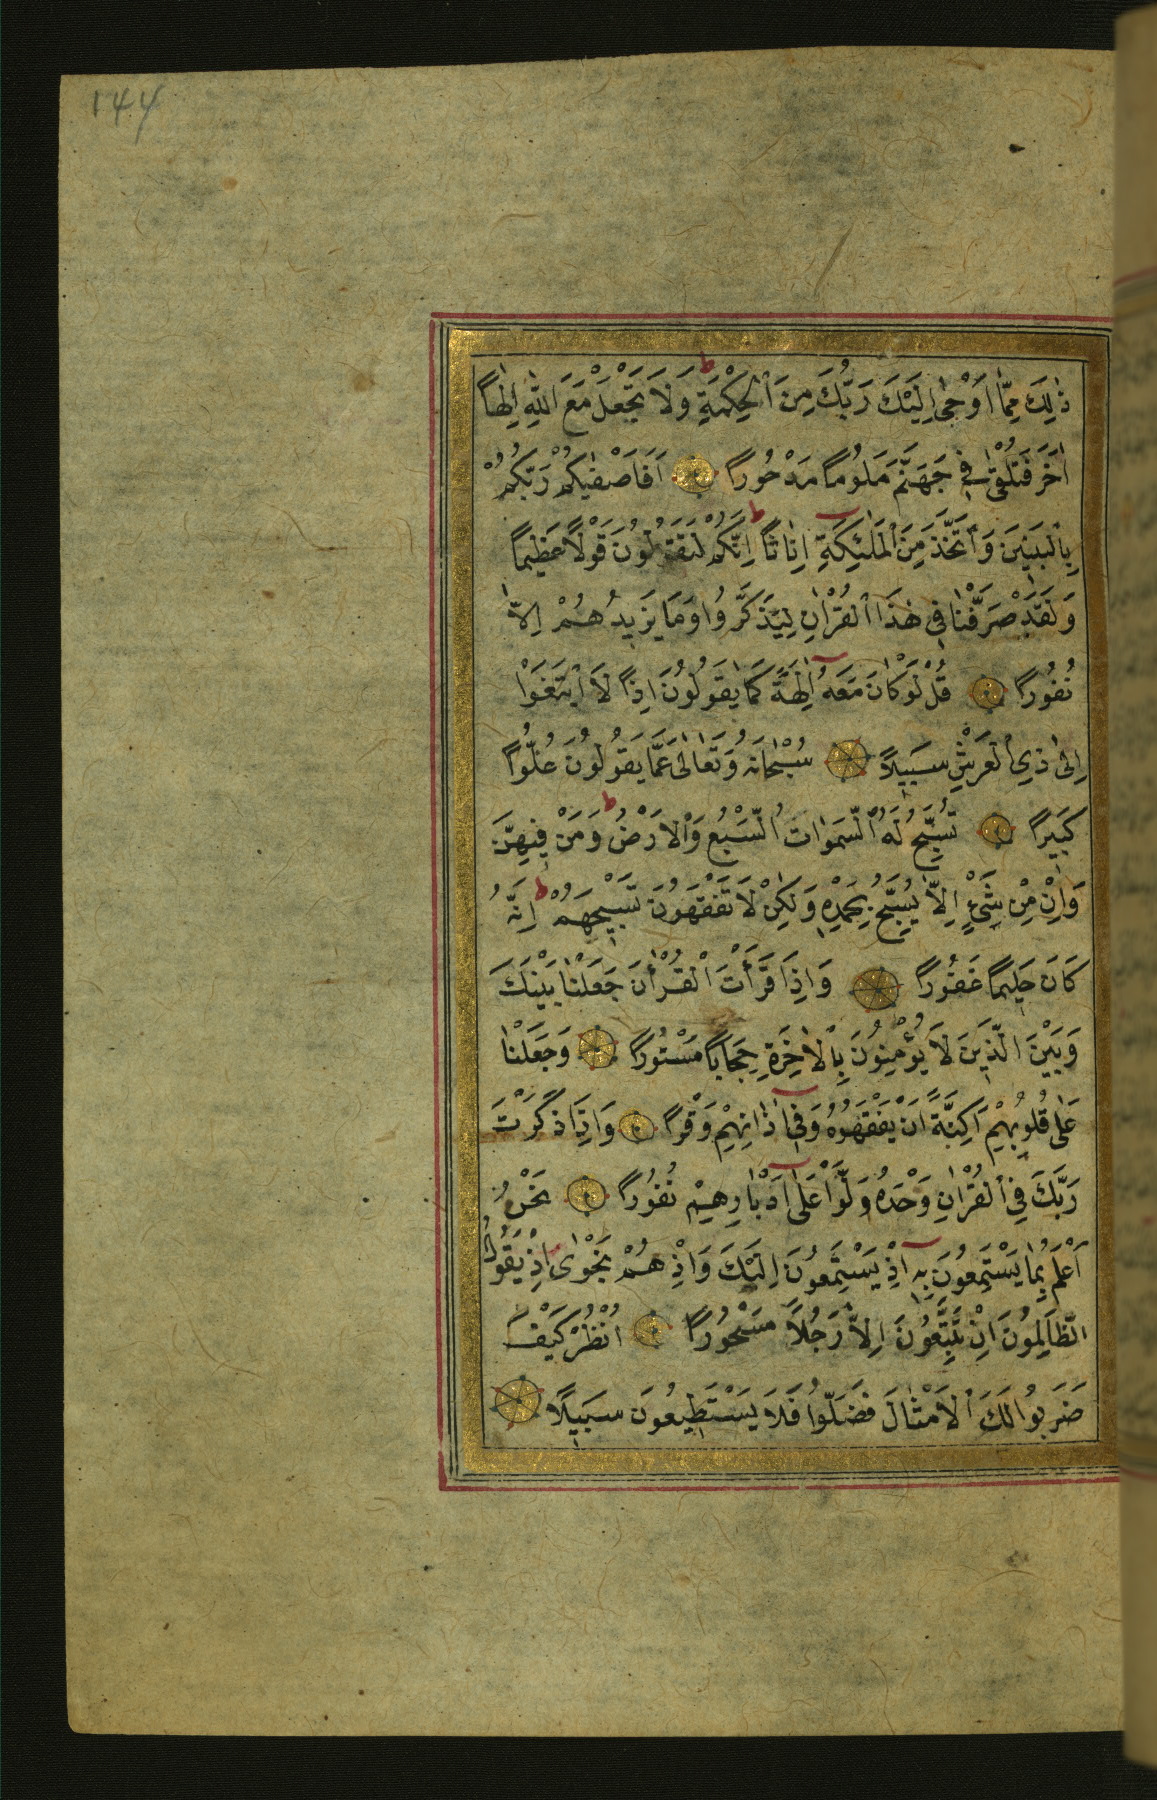 144
ذٰلِكَ مِمَّا اَوْحٰى اِلَيْكَ رَبُّكَ مِنَ الْحِكْمَةِ ط وَلَا تَجْعَلْ مَعَ اللّٰهِ اِلٰهًا
اٰخَرَ فَتُلْقٰى فِي جَهَنَّمَ مَلُومًا مَدْحُورًا اَفَاَصْفٰيكُمْ رَبُّكُمْ
بِالْبَنِينَ وَاتَّخَذَ مِنَ الْمَلٰئِكَةِ اِنَاثًا ط اِنَّكُمْ لَتَقُولُونَ قَوْلًا عَظِيمًا
وَلَقَدْ صَرَّفْنَا فِي هٰذَا الْقُرْاٰنِ لِيَذَّكَّرُوا وَمَا يَزِيدُهُمْ اِلَّا
نُفُورًا قُلْ لَوْ كَانَ مَعَهُ اٰلِهَةٌ كَمَا يَقُولُونَ اِذًا لَابْتَغَوْا
اِلٰى ذِي الْعَرْشِ سَبِيلًا سُبْحَانَهُ وَتَعَالٰى عَمَّا يَقُولُونَ عُلُوًّا
كَبِيرًا تُسَبِّحُ لَهُ السَّمٰوَاتُ السَّبْعُ وَالْاَرْضُ وَمَنْ فِيهِنَّ ط
وَاِنْ مِنْ شَيْءٍ اِلَّا يُسَبِّحُ بِحَمْدِهِ وَلٰكِنْ لَا تَفْقَهُونَ تَسْبِيحَهُمْ ط اِنَّهُ
كَانَ حَلِيمًا غَفُورًا وَاِذَا قَرَأْتَ الْقُرْاٰنَ جَعَلْنَا بَيْنَكَ
وَبَيْنَ الَّذِينَ لَا يُؤْمِنُونَ بِالْاٰخِرَةِ حِجَابًا مَسْتُورًا وَجَعَلْنَا
عَلٰى قُلُوبِهِمْ اَكِنَّةً اَنْ يَفْقَهُوهُ وَفِي اٰذَانِهِمْ وَقْرًا وَاِذَا ذَكَرْتَ
رَبَّكَ فِي الْقُرْاٰنِ وَحْدَهُ وَلَّوْا عَلٰى اَدْبَارِهِمْ نُفُورًا نَحْنُ
اَعْلَمُ بِمَا يَسْتَمِعُونَ بِهِ اِذْ يَسْتَمِعُونَ اِلَيْكَ وَاِذْ هُمْ نَجْوٰى اِذْ يَقُولُ
الظَّالِمُونَ اِنْ تَتَّبِعُونَ اِلَّا رَجُلًا مَسْحُورًا اُنْظُرْ كَيْفَ
ضَرَبُوا لَكَ الْاَمْثَالَ فَضَلُّوا فَلَا يَسْتَطِيعُونَ سَبِيلًا